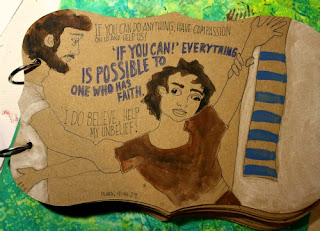 IF YOU CAN DO ANYTHING, HAVE COMPASSION
ON US AND HELP US!
'IF YOU CAN!' EVERYTHING
IS POSSIBLE TO
ONE WHO HAS
FAITH.
I DO BELIEVE, HELP
MY UNBELIEF!